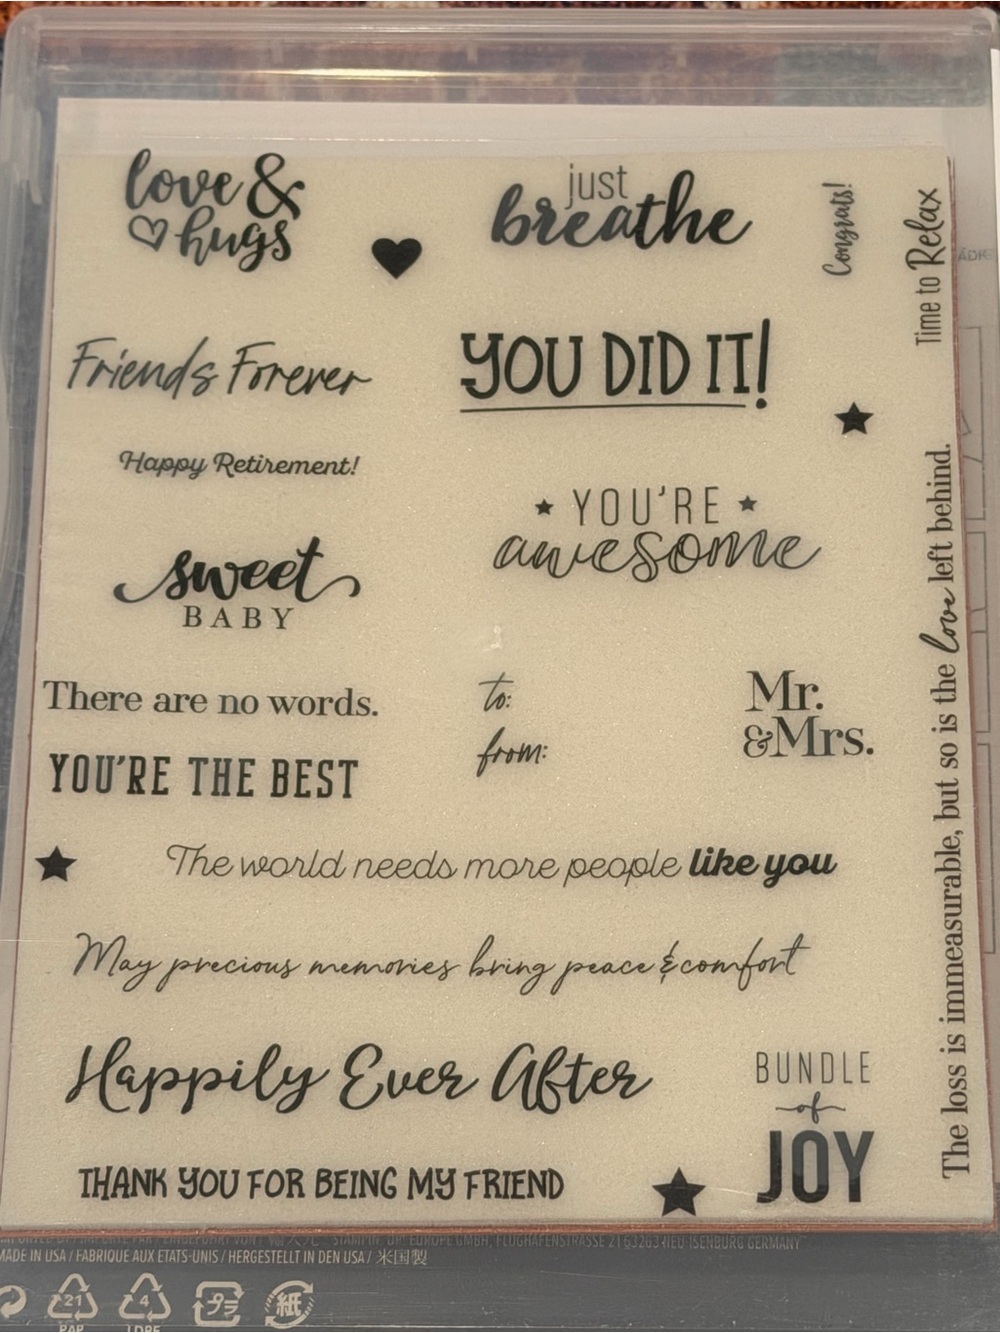 love &
hugs
just
breathe
Congrats!
Time to Relax
Friends Forever
YOU DID IT!
Happy Retirement!
YOU'RE
awesome
sweet
BABY
There are no words.
to:
from:
Mr.
&Mrs.
YOU'RE THE BEST
The world needs more people like you
May precious memories bring peace & comfort
The loss is immeasurable, but so is the love left behind.
Happily Ever After
BUNDLE
of
JOY
THANK YOU FOR BEING MY FRIEND
STAMPIN' UP! EUROPE GMBH, FLUGHAFENSTRASSE 21 63263 NEU-ISENBURG GERMANY
MADE IN USA / FABRIQUE AUX ETATS-UNIS / HERGESTELLT IN DEN USA / 米国製
21
PAP
4
LDPE
プラ
紙